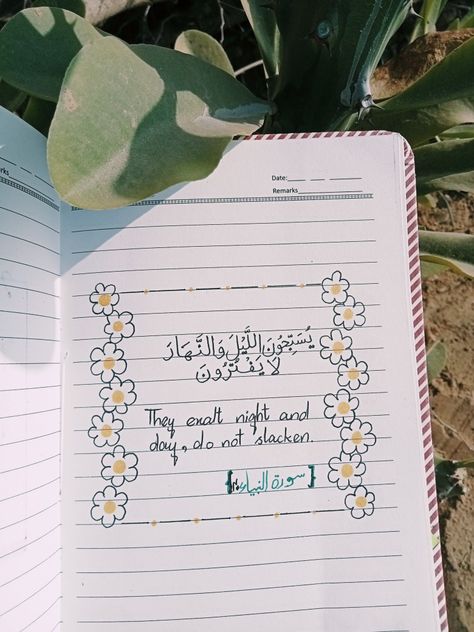 rks
Date:___ ___ ___
Remarks
يُسَبِّحُونَ اللَّيْلَ وَالنَّهَارَ
لَا يَفْتُرُونَ
They exalt night and
day, do not slacken.
سورة النبياء